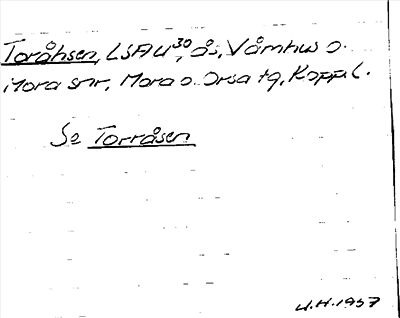 Toråhsen, LSAU 30, ås, Våmhus o.
Mora snr, Mora o. Orsa tg, Kopp l.
Se Torråsen
H.H. 1957